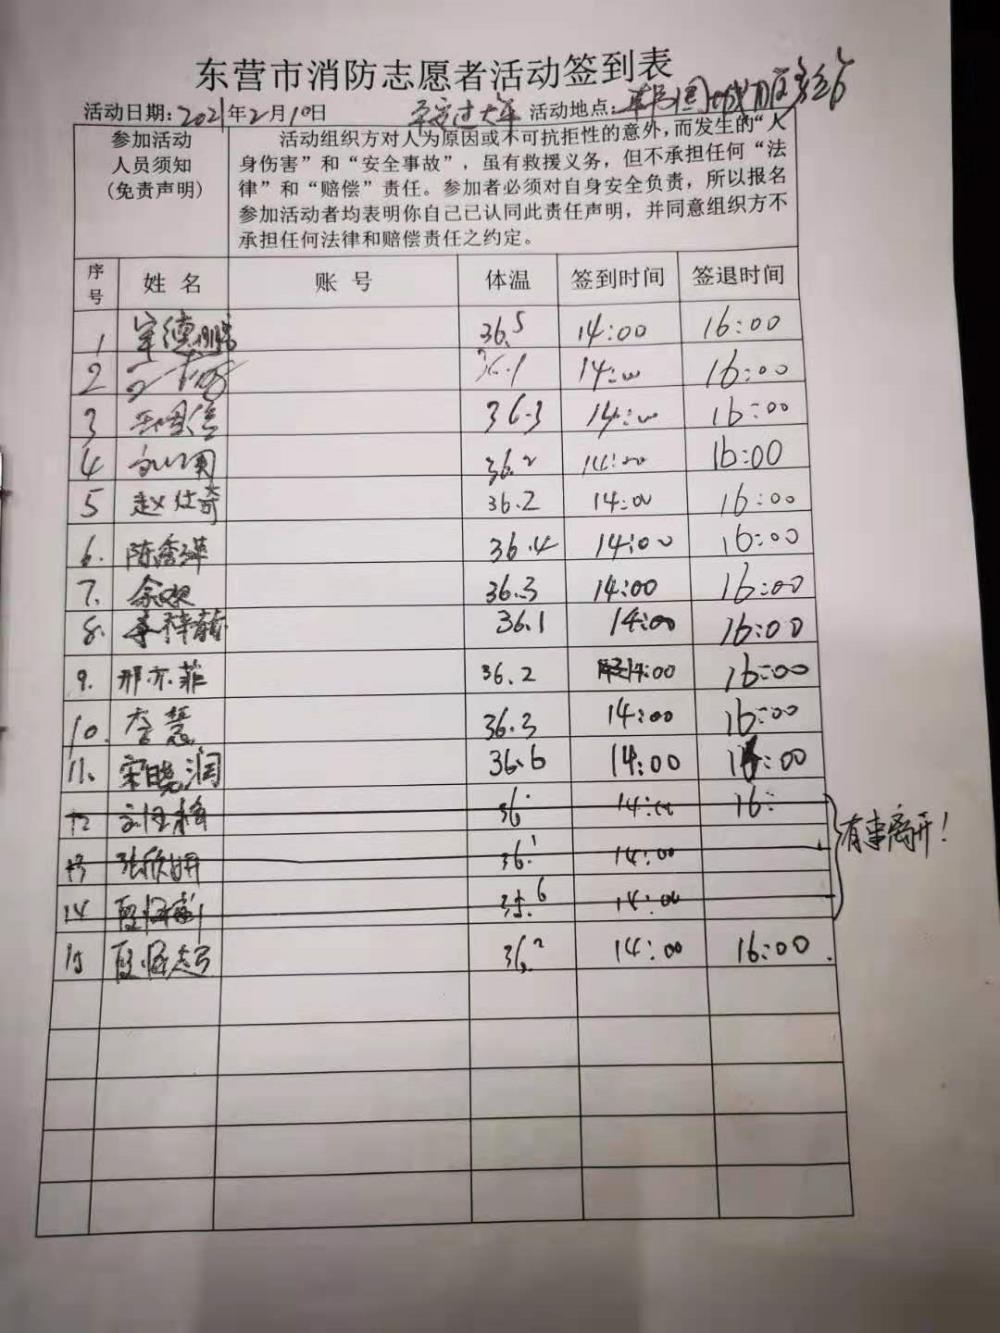 东营市消防志愿者活动签到表
活动日期：2021年2月10日 平安过大年 活动地点：
参加活动
人员须知
（免责声明）
活动组织方对人为原因或不可抗拒性的意外，而发生的“人
身伤害”和“安全事故”，虽有救援义务，但不承担任何“法
律”和“赔偿”责任。参加者必须对自身安全负责，所以报名
参加活动者均表明你自己已认同此责任声明，并同意组织方不
承担任何法律和赔偿责任之约定。
序号 姓名 账号 体温 签到时间 签退时间
1 36.5 14:00 16:00
2 36.1 14:00 16:00
3 36.3 14:00 16:00
4 36.2 14:00 16:00
5 赵仕奇 36.2 14:00 16:00
6. 陈秀萍 36.4 14:00 16:00
7. 余欢 36.3 14:00 16:00
8. 36.1 14:00 16:00
9. 邢亦菲 36.2 14:00 16:00
10. 李慧 36.3 14:00 16:00
11. 宋晓润 36.6 14:00 16:00
12 36. 14:00 16:
13 张欣妍 36.1 14:00
14 35.6 14:00
有事离开！
15 36.2 14:00 16:00.